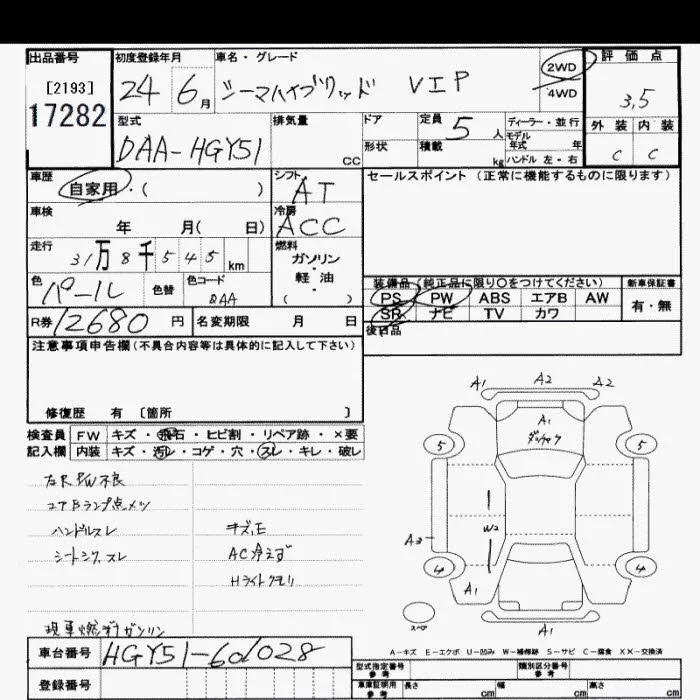 出品番号 初度登録年月 車名・グレード 2WD 4WD 評価点
[2193] 24 6月 シーマハイブリッド VIP 3,5
17282
型式 排気量 ドア 定員 5人 ディーラー・並行 外装 内装
DAA-HGY51 cc 形状 積載 kg モデル年式 年 C C
ハンドル 左・右
車歴 シフト セールスポイント (正常に機能するものに限ります)
自家用・( ) AT
車検 冷房
年 月( 日) ACC
走行 燃料
31万8千545km ガソリン・軽油・( )
色 色替 色コード 装備品(純正品に限り○をつけてください) 新車保証書
パール QAA PS PW ABS エアB AW 有・無
SR ナビ TV カワ
R券 12680円 名変期限 月 日 後日品
注意事項申告欄(不具合内容等は具体的に記入して下さい)
修復歴 有 [箇所 ]
検査員 FW キズ・飛石・ヒビ割・リペア跡・×要
記入欄 内装 キズ・汚レ・コゲ・穴・スレ・キレ・破レ
右R PW不良
エアBランプ点メツ
ハンドルスレ キズ,E
シートシワ,スレ AC冷えず
Hライトクモリ
現車燃料ガソリン
車台番号 HGY51-601028
登録番号
A1 A2 A2
A1
5 5
W2
A3
4 4
A1
スペア A1
A-キズ E-エクボ U-凹み W-補修跡 S-サビ C-腐食 XX-交換済
型式指定番号 参考 類別区分番号 参考
車庫証明用 参考 長さ cm 幅 cm 高さ cm